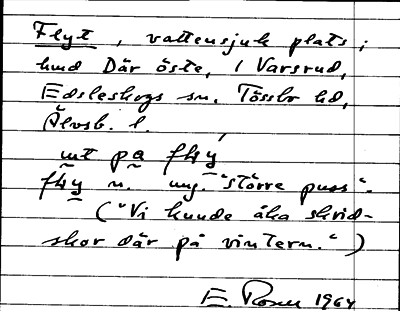 Flyt, vattensjuk plats i
hmd Där öste, i Varsrud,
Edsleskogs sn. Tössbo hd,
Älvsb. l.
mt pa fħy
fħy n. ung. "större puss".
("Vi kunde åka skrid-
skor där på vintern.")
E. Rosen 1964